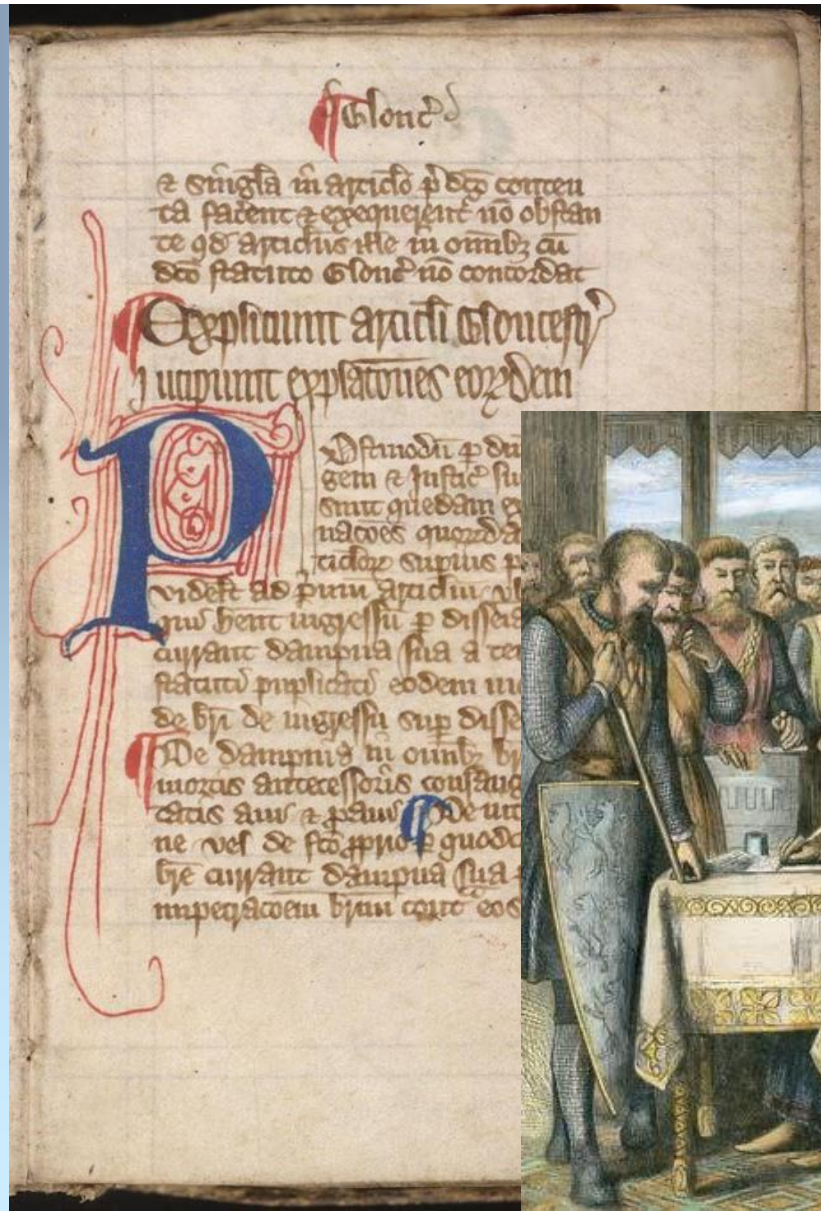 ¶ Glouc̄
& singl̄a in articl̄o p̄dc̄o conten
ta facent & exequerent̄ nō obstan
te qd̄ articlus ille in omnib₃ cū
dc̄o statuto Glouc̄ nō concordat
Expliciunt articl̄i Gloucestr̄
Incipiunt explac̄ones eorūdem
Postmodū p̄ dn̄
gem & Justic̄ su
sunt quedam ex
nac̄ones quorūda
ticlor̄ supius p
videlt̄ ad p̄mū articlm̄ vl
qui hent̄ ingressū p̄ disseis
currant dampna sua a te
statuti puplicati eodem m
de br̄i de ingressu sup̄ disse
¶ De dampnis in omnib₃ br
mortis antecessoris consang
tatis aui & p̄aui ¶ De ut
ne vel de fc̄o p̄prio quod
br̄e currant dampna sua
impetrac̄oem br̄ium cont̄ eos